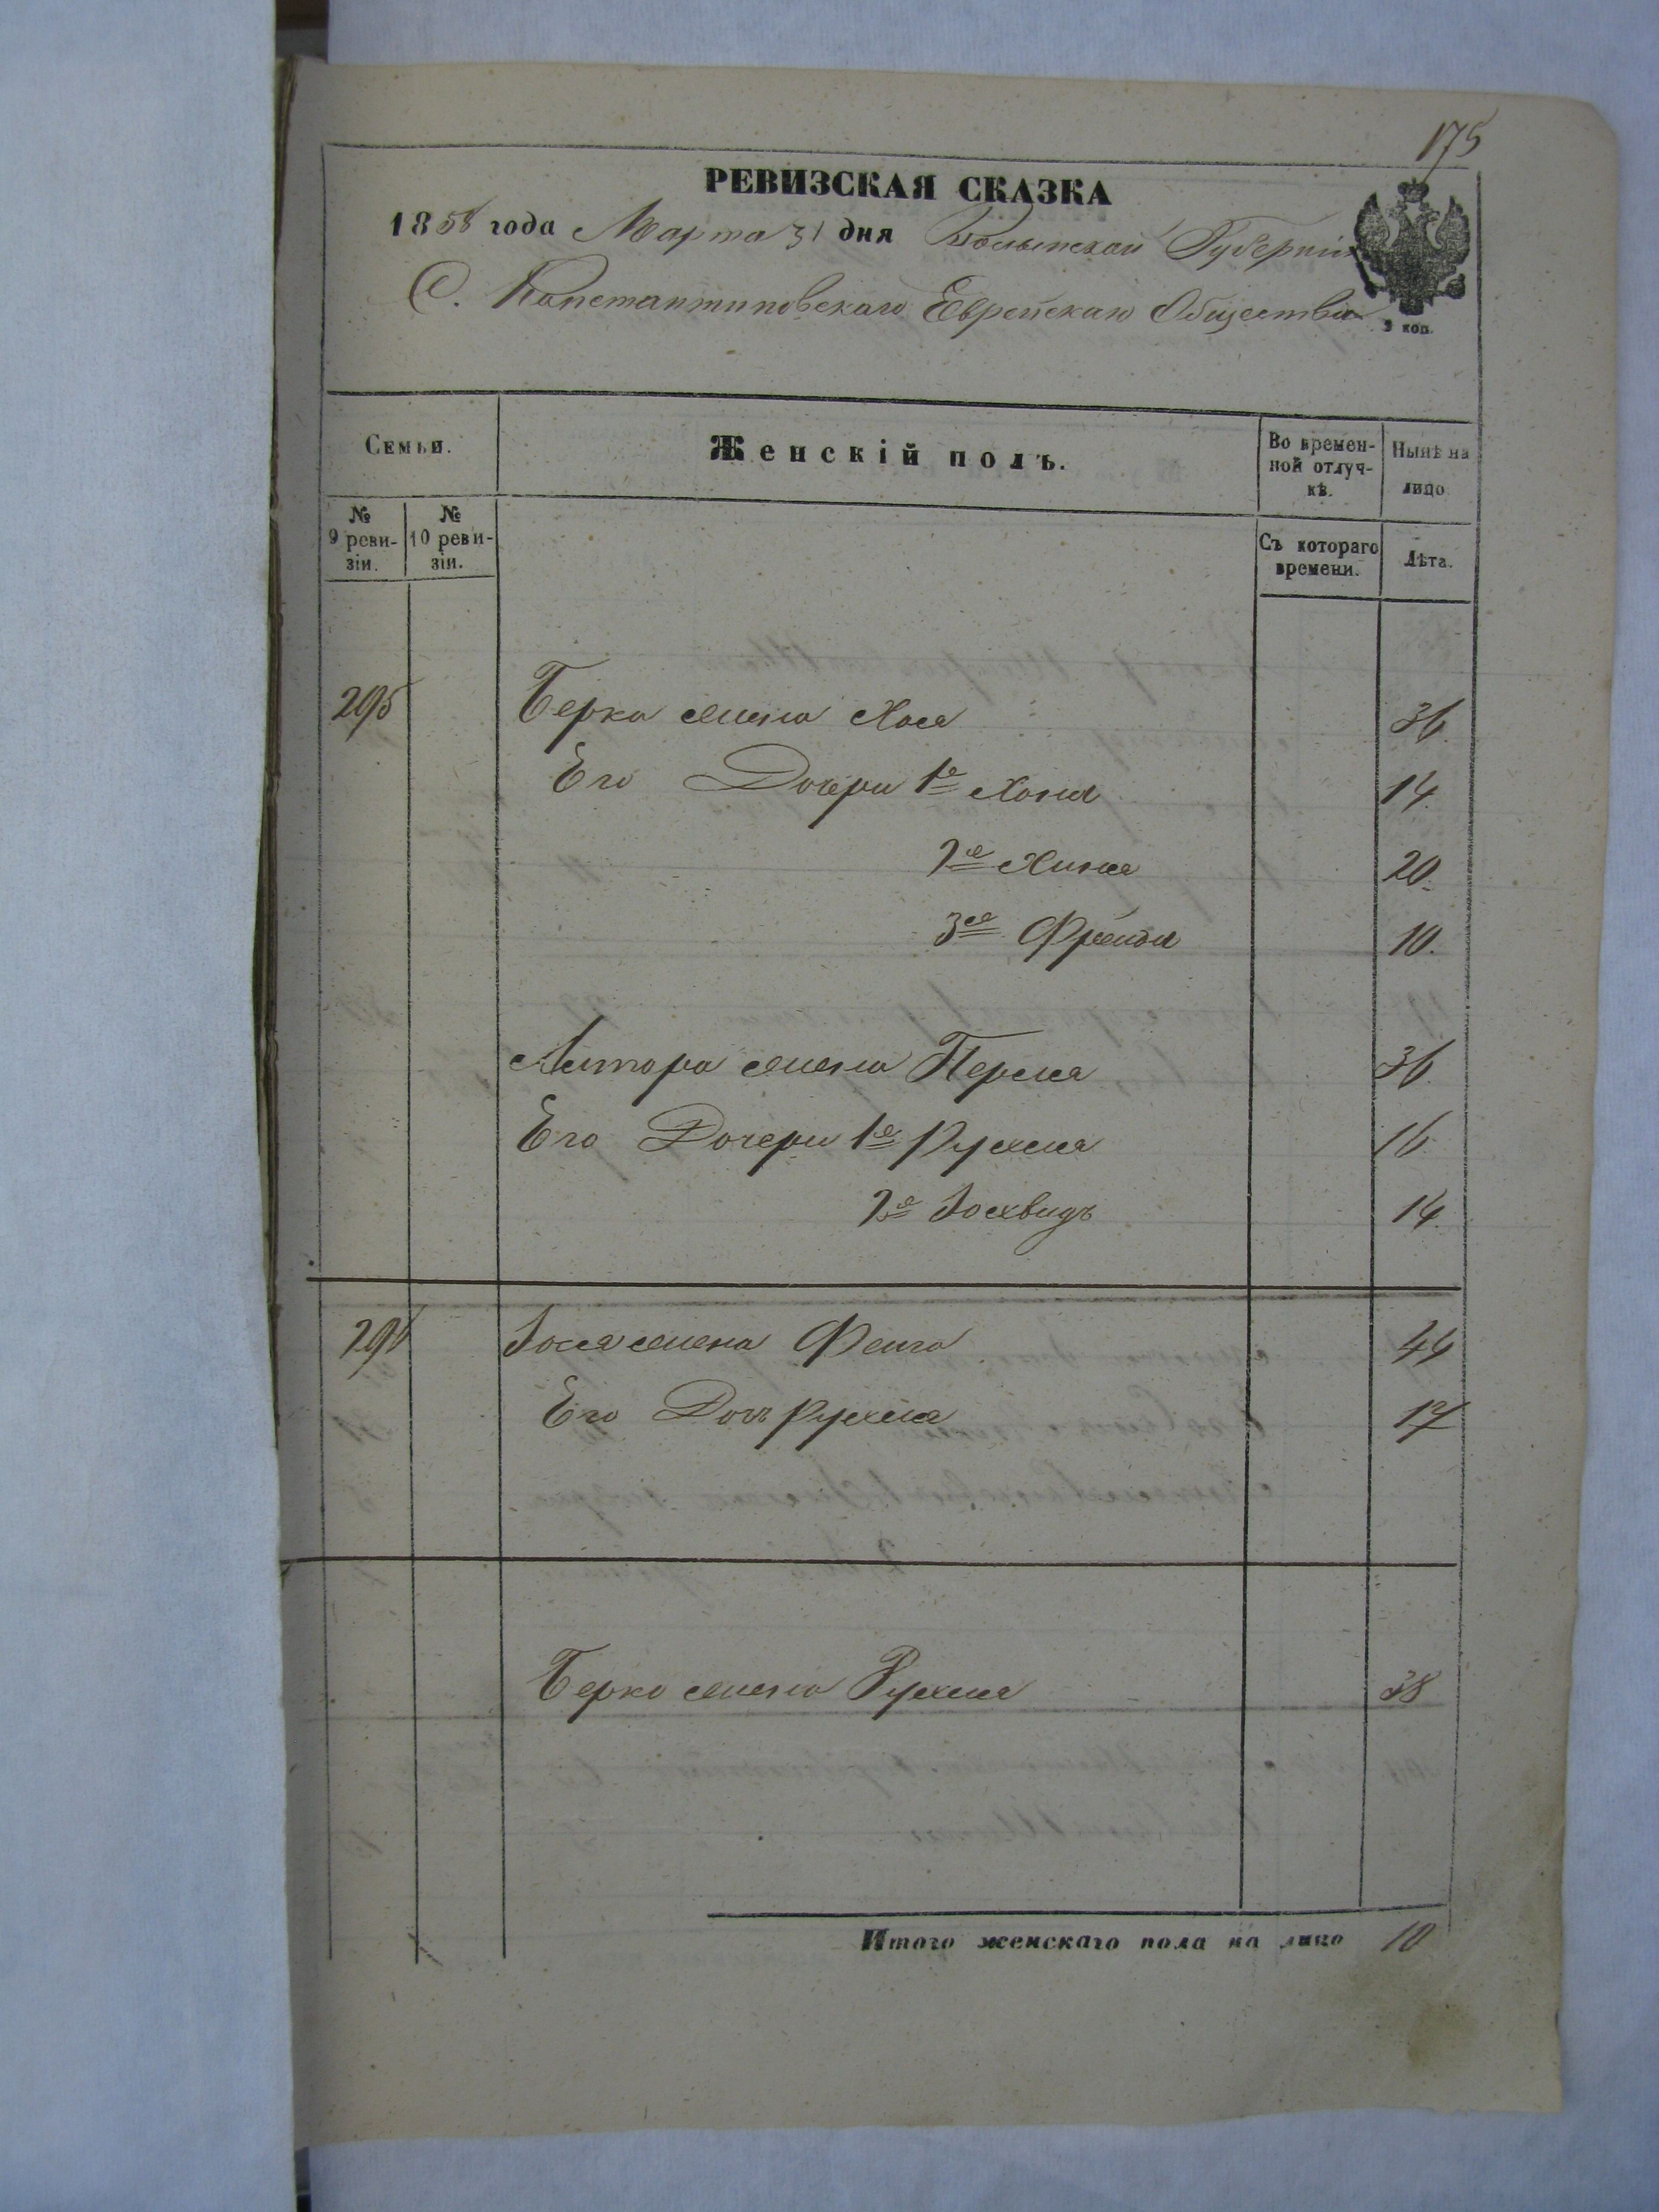 175
РЕВИЗСКАЯ СКАЗКА
1858 года Марта 31 дня Волынской Губерніи
С. Константиновскаго Еврейскаго Общества
3 коп.
Семьи.
Женскій полъ.
Во времен-
ной отлуч-
кѣ.
Нынѣ на
лицо
№
9 реви-
зіи.
№
10 реви-
зіи.
Съ котораго
времени.
Лѣта.
295 Берка жена Хася 36
Его Дочери 1я Хона 14
2я Хинка 20
3я Фрейда 10.
жена Перля 36
Его Дочери 1я Рухля 16
2я 14
296 Іося жена Фейга 44
Его Дочь Рухля 17
Берко жена Рухля 38
Итого женскаго пола на лицо 10